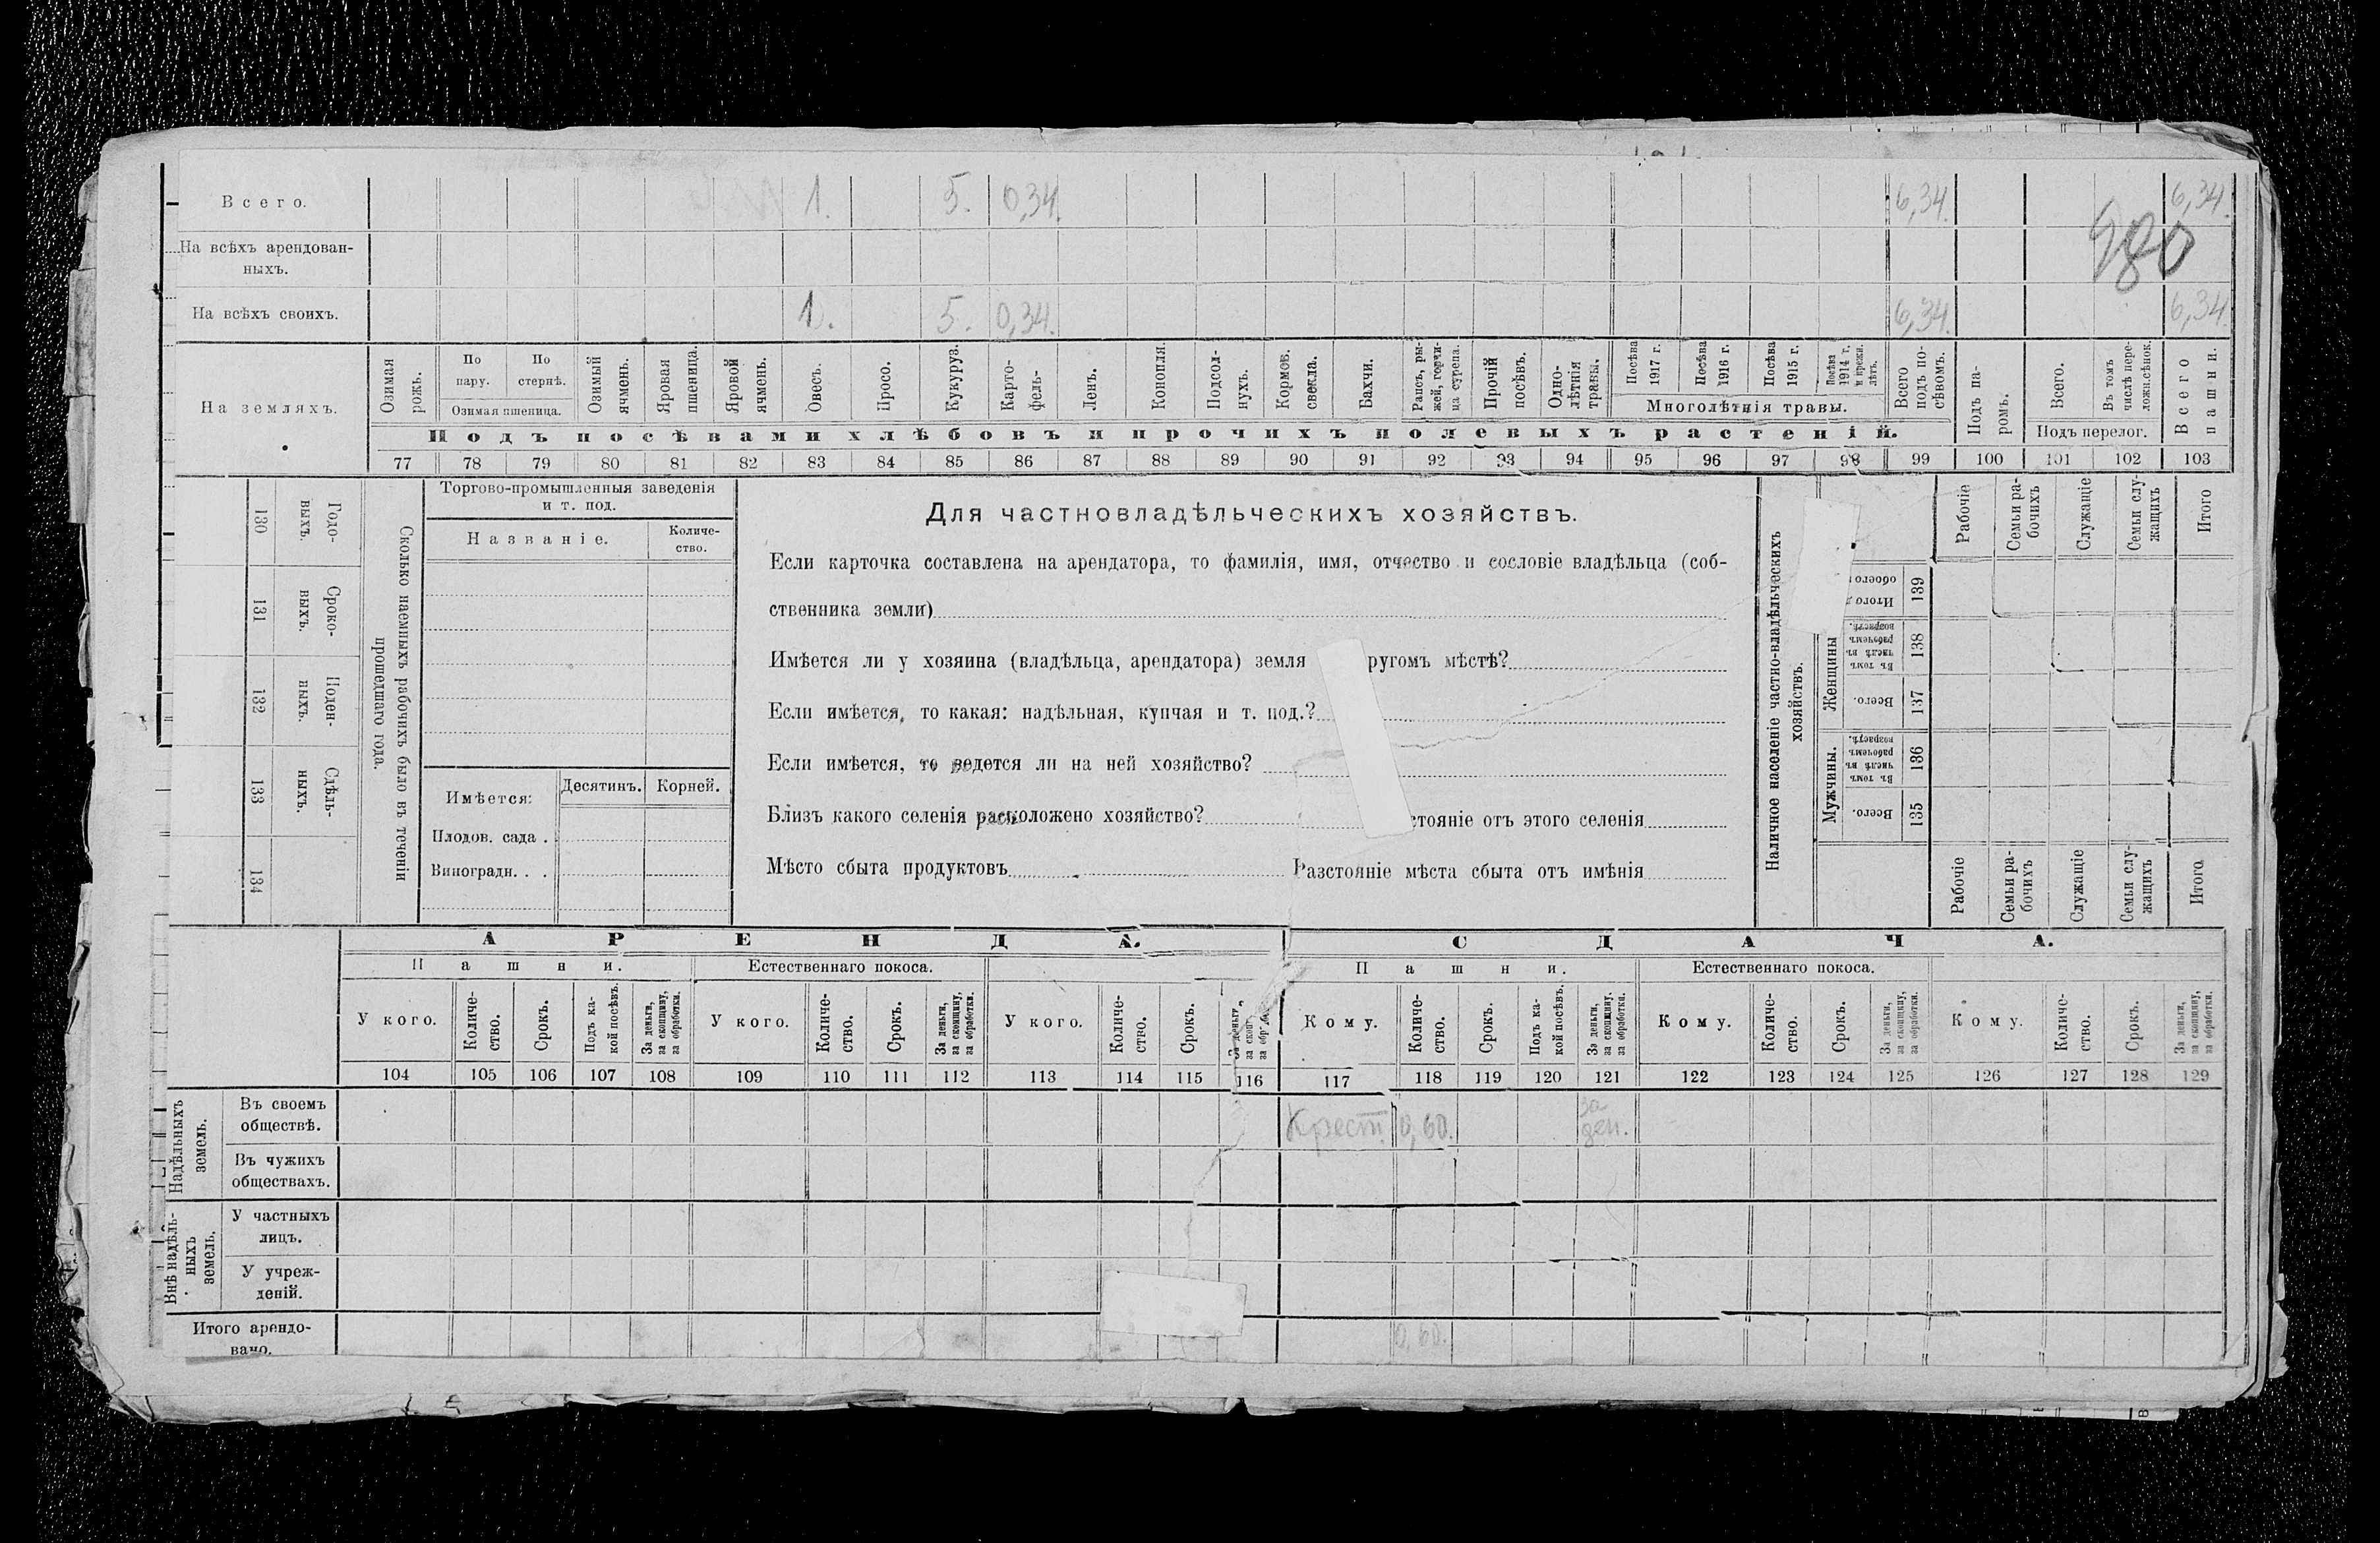 Всего. 1. 5. 0,34. 6,34. 6,34.
На всѣхъ арендован-
ныхъ.
980
На всѣхъ своихъ. 1. 5. 0,34. 6,34. 6,34.
На земляхъ.
Озимая рожь.
По пару.
По стернѣ.
Озимая пшеница.
Озимый ячмень.
Яровая пшеница.
Яровой ячмень.
Овесъ.
Просо.
Кукуруз.
Карто-
фель-
Ленъ.
Конопля.
Подсол-
нухъ.
Кормов. свекла.
Бахчи.
Рапсъ, ры-
жей, горчи-
ца сурепа.
Прочій посѣвъ.
Одно-
лѣтнія травы.
Посѣва 1917 г.
Посѣва 1916 г.
Посѣва 1915 г.
Посѣва 1914 г. и прежн. лѣтъ.
Многолѣтнія травы.
Всего подъ по-
сѣвомъ.
Подъ па-
ромъ.
Всего.
Въ томъ числѣ пере-
ложн.сѣнок.
Подъ перелог.
Всего пашни.
Подъ посѣвами хлѣбовъ и прочихъ полевыхъ растеній.
77 78 79 80 81 82 83 84 85 86 87 88 89 90 91 92 93 94 95 96 97 98 99 100 101 102 103
130 Годо-
выхъ.
131 Сроко-
выхъ.
132 Поден-
ныхъ.
133 Сдѣль-
ныхъ.
134
Сколько наемныхъ рабочихъ было въ теченіи
прошедшаго года.
Торгово-промышленныя заведенія
и т. под.
Названіе.
Количе-
ство.
Имѣется: Десятинъ. Корней.
Плодов. сада .
Виноградн. . .
Для частновладѣльческихъ хозяйствъ.
Если карточка составлена на арендатора, то фамилія, имя, отчество и сословіе владѣльца (соб-
ственника земли)
Имѣется ли у хозяина (владѣльца, арендатора) земля ругомъ мѣстѣ?
Если имѣется, то какая: надѣльная, купчая и т. под.?
Если имѣется, то ведется ли на ней хозяйство?
Близъ какого селенія расположено хозяйство? стояніе отъ этого селенія
Мѣсто сбыта продуктовъ Разстояніе мѣста сбыта отъ имѣнія
Наличное населеніе частно-владѣльческихъ
хозяйствъ.
Рабочіе
Семьи ра-
бочихъ
Служащіе
Семьи слу-
жащихъ
Итого
Итого обоего
139
Женщины
Въ томъ числѣ въ рабочемъ возрастѣ.
138
Всего.
137
Мужчины.
Въ томъ числѣ въ рабочемъ возрастѣ.
136
Всего.
135
Рабочіе
Семьи ра-
бочихъ
Служащіе
Семьи слу-
жащихъ
Итого
АРЕНДА. СДАЧА.
Пашни. Естественнаго покоса. Пашни. Естественнаго покоса.
У кого.
Количе-
ство.
Срокъ.
Подъ ка-
кой посѣвъ.
За деньги,
за скопщину,
за обработки.
У кого.
Количе-
ство.
Срокъ.
За деньги,
за скопщину,
за обработки.
У кого.
Количе-
ство.
Срокъ.
За деньги,
Кому.
Количе-
ство.
Срокъ.
Подъ ка-
кой посѣвъ.
За деньги,
за скопщину,
за обработки.
Кому.
Количе-
ство.
Срокъ.
За деньги,
за скопщину,
за обработки.
Кому.
Количе-
ство.
Срокъ.
За деньги,
за скопщину,
за обработки.
104 105 106 107 108 109 110 111 112 113 114 115 116 117 118 119 120 121 122 123 124 125 126 127 128 129
Надѣльныхъ
земель.
Въ своемъ
обществѣ. Крест. 0,60. за ден.
Въ чужихъ
обществахъ.
Внѣ надѣль-
ныхъ
земель.
У частныхъ
лицъ.
У учреж-
деній.
Итого арендо- 0,60.
вано.